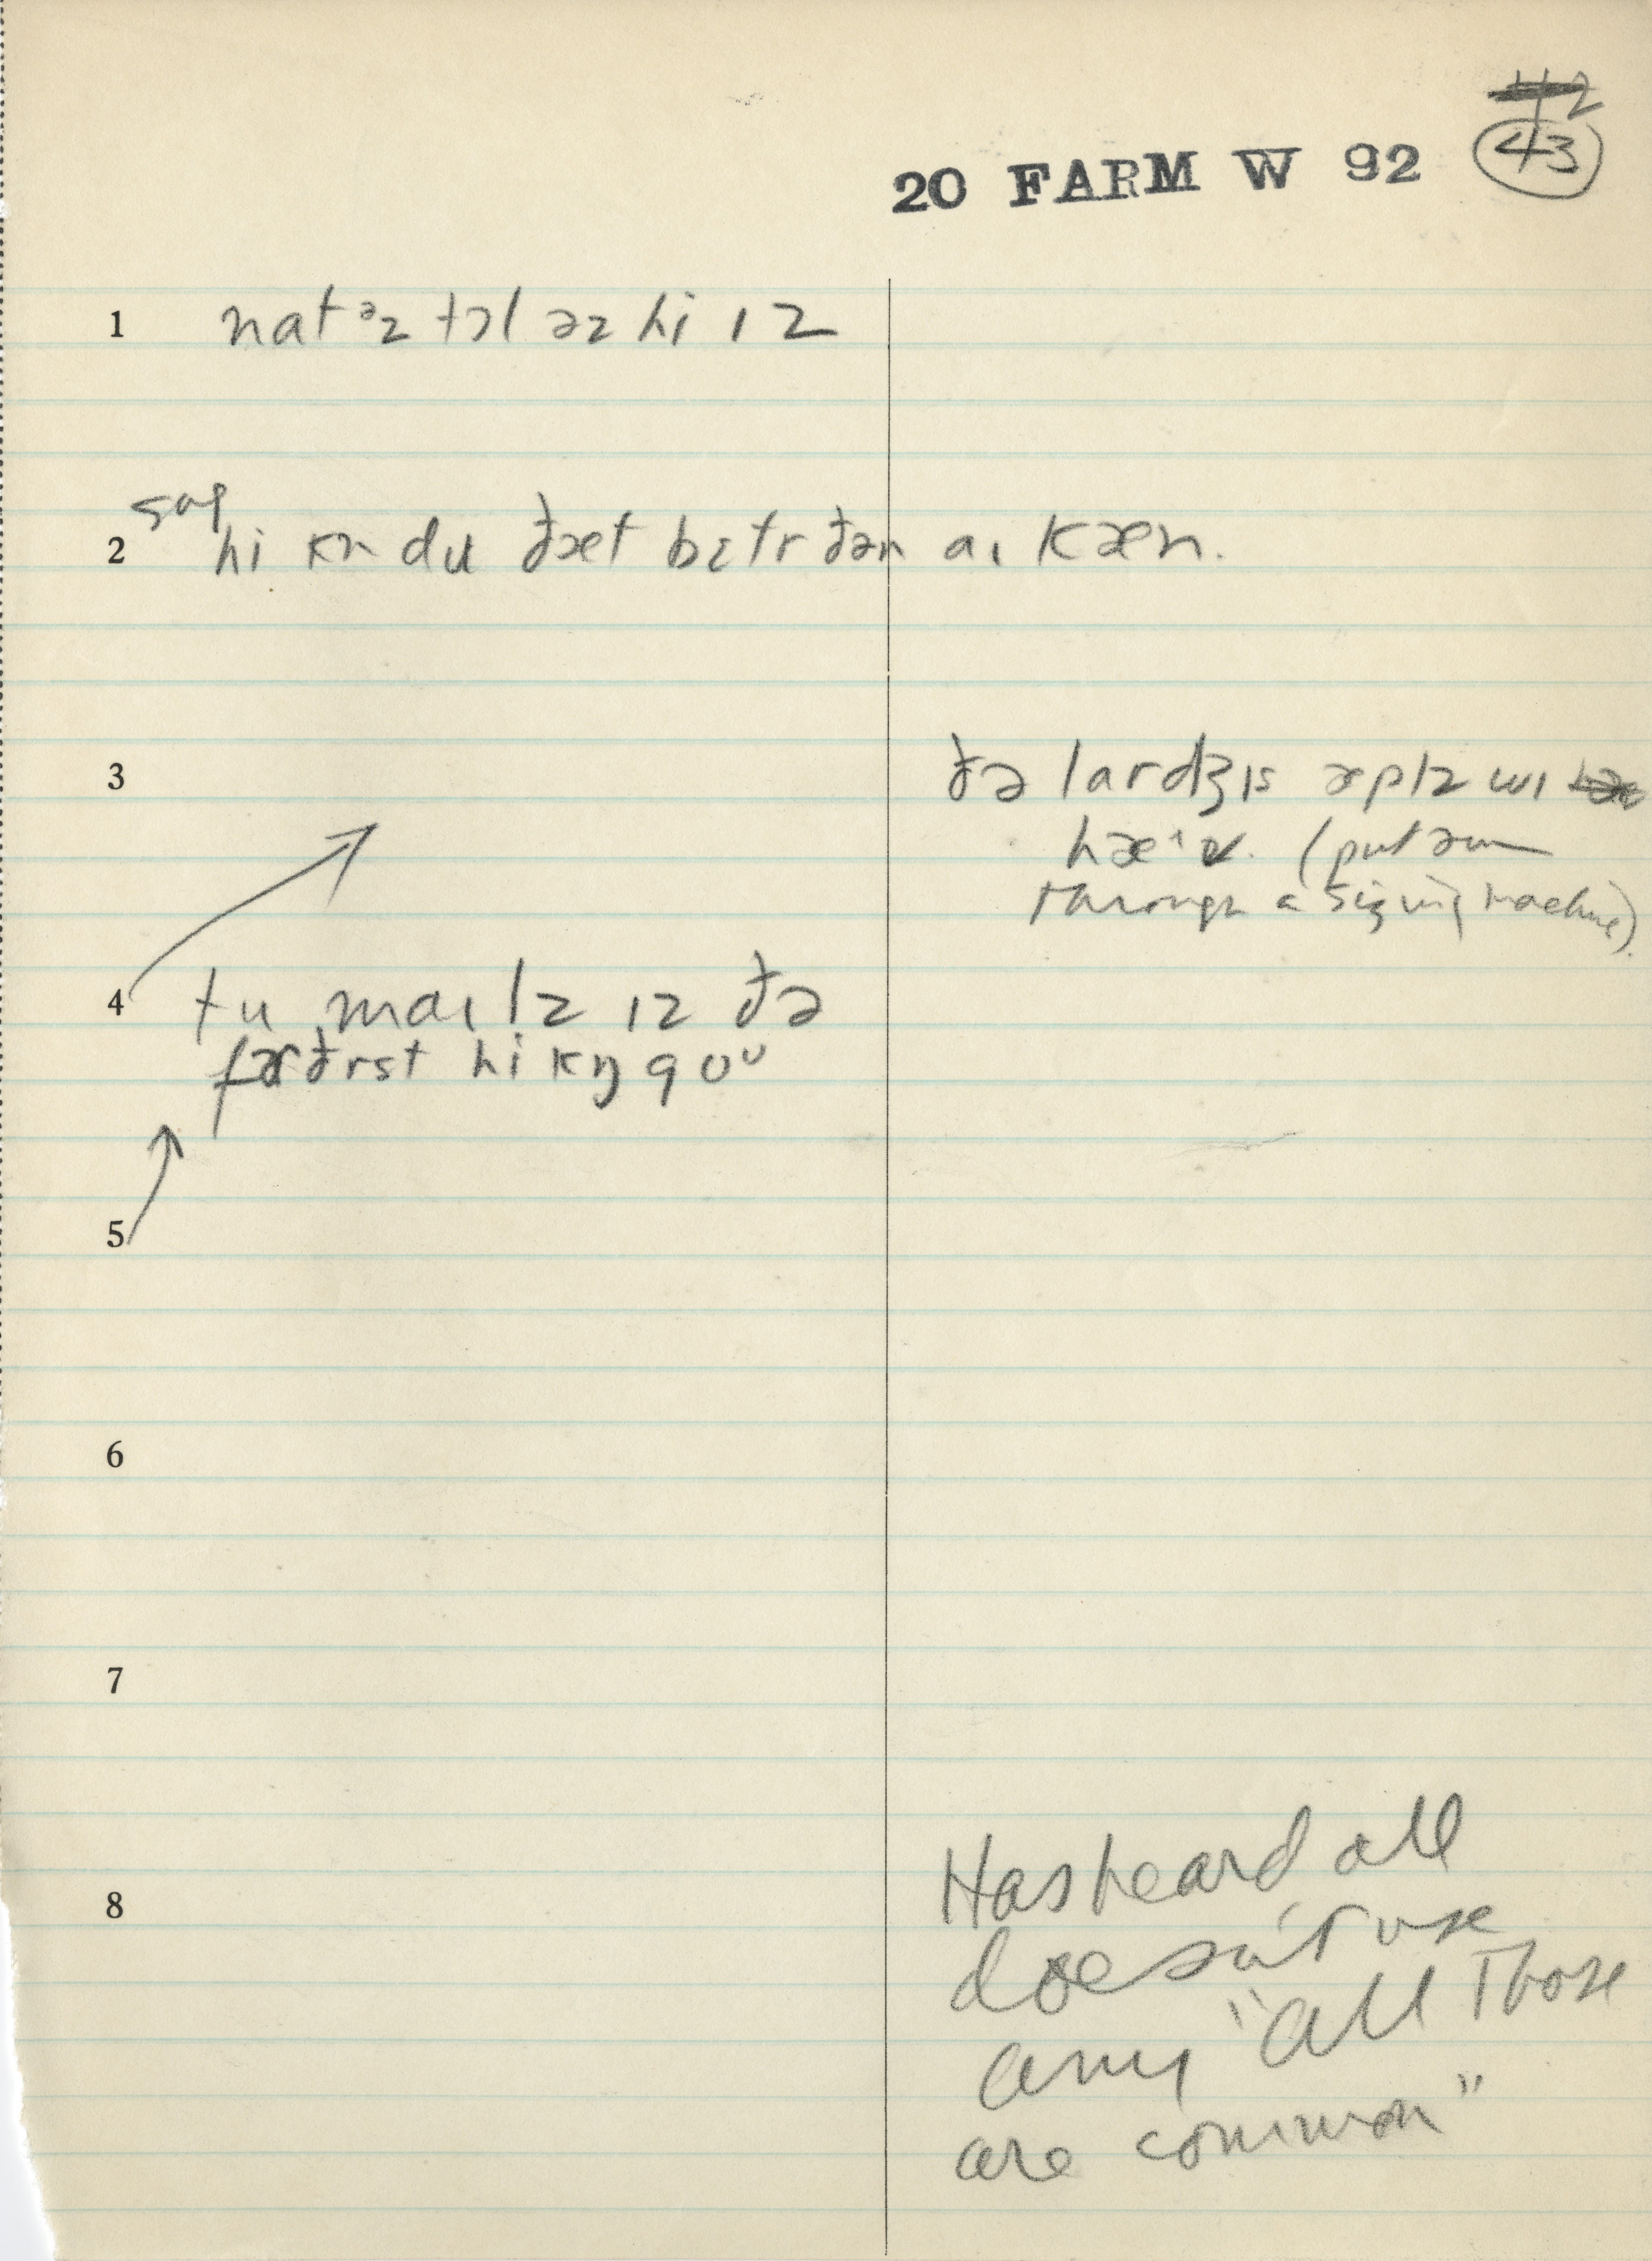 42
20 FARM W 92 43
1 nat əz tɔl əz hi ɪz
sug
2 hi kn du ðæt bɛtr ðən aɪ kæn.
3 ðə lardʒɪs æplz wɪ
hæ^v. (put əm
through a sizing machine).
4 tu maɪlz ɪz ðə
færðrst hi kŋ goᴜ
5
6
7
8 Has heard all
doesn't use
any "all those
are common"